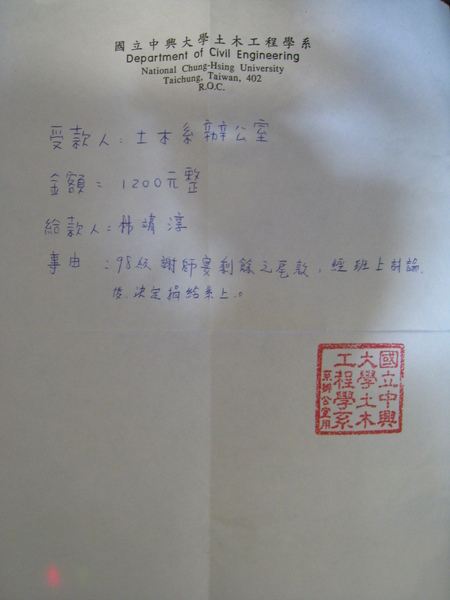 國立中興大學土木工程學系
Department of Civil Engineering
National Chung-Hsing University
Taichung, Taiwan, 402
R.O.C.
受款人：土木系辦公室
金額：1200元整
給款人：林靖淳
事由：98級謝師宴剩餘之尾款，經班上討論
後，決定捐給系上。
國立中興
大學土木
工程學系
系辦公室用